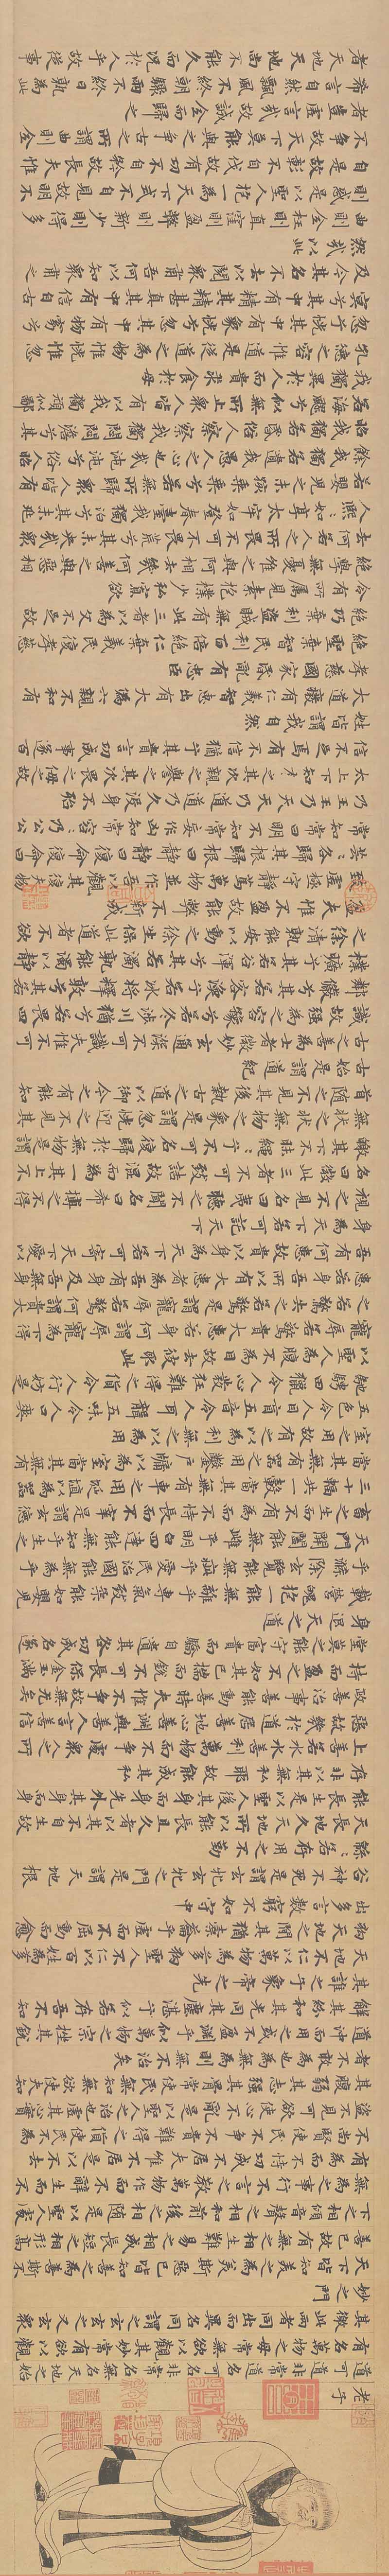 老子
道可道非常道名可名非常名無名天地之始
有名萬物之母常無欲以觀其妙常有欲以觀
其徼此兩者同出而異名同謂之玄玄之又玄衆
妙之門
天下皆知美之為美斯惡已皆知善之為善斯不
善已故有無之相生難易之相成長短之相形高
下之相傾音聲之相和前後之相隨是以聖人處
無為之事行不言之教萬物作而不辭生而不
有為而不恃功成不居夫惟不居是以不去
不尚賢使民不爭不貴難得之貨使民不為
盜不見可欲使心不亂是以聖人之治也虛其心實
其腹弱其志强其骨常使民無知無欲使夫知
者不敢為也為無為則無不治矣
道沖而用之或不盈淵乎似萬物之宗挫其銳
解其紛和其光同其塵湛兮似若存吾不知
其誰之子象帝之先
天地不仁以萬物為芻狗聖人不仁以百姓為芻
狗天地之間其猶橐籥乎虛而不屈動而愈
出多言數窮不如守中
谷神不死是謂玄牝玄牝之門是謂天地根
綿綿若存用之不勤
天長地久天地所以能長且久者以其不自生故
能長生是以聖人後其身而身先外其身而身
存非以其無私耶故能成其私
上善若水水善利萬物而不爭處衆人之所
惡故幾於道居善地心善淵與善人言善信
政善治事善能動善時夫惟不爭故無尤矣
持而盈之不如其已揣而銳之不可長保金玉滿
堂莫之能守富貴而驕自遺其咎功成名遂
身退天之道
載營魄抱一能無離乎專氣致柔能如嬰兒
乎滌除玄覽能無疵乎愛民治國能無為乎
天門開闔能無雌乎明白四達能無知乎生之
畜之生而不有為而不恃長而不宰是謂玄德
三十輻共一轂當其無有車之用埏埴以為器
當其無有器之用鑿戶牖以為室當其無有
室之用故有之以為利無之以為用
五色令人目盲五音令人耳聾五味令人口爽
馳騁田獵令人心發狂難得之貨令人行妨是
以聖人為腹不為目故去彼取此
寵辱若驚貴大患若身何謂寵辱寵為下得
之若驚失之若驚是謂寵辱若驚何謂貴大
患若身吾所以有大患者為吾有身及吾無身
吾有何患故貴以身為天下者可寄天下愛以
身為天下者可託天下
視之不見名曰夷聽之不聞名曰希搏之不得
名曰微此三者不可致詰故混而為一其上不
皦其下不昧繩繩兮不可名復歸於無物是謂
無狀之狀無物之象是謂忽恍迎之不見其
首隨之不見其後執古之道以御今之有能知
古始是謂道紀
古之善為士者微妙玄通深不可識夫惟不可
識故强為之容豫兮若冬涉川猶兮若畏四
鄰儼兮其若客渙兮若冰將釋敦兮其若
樸曠兮其若谷渾兮其若濁孰能濁以靜
之徐清孰能安以動之徐生保此道者不欲
盈夫惟不盈故能弊不新成
致虛極守靜篤萬物並作吾以觀其復夫物
芸芸各歸其根歸根曰靜靜曰復命復命曰
常知常曰明不知常妄作凶知常容容乃公公
乃王王乃天天乃道道乃久沒身不殆
太上下知有之其次親之譽之其次畏之侮之故
信不足焉有不信猶兮其貴言功成事遂百
姓皆謂我自然
大道廢有仁義智惠出有大偽六親不和有
孝慈國家昏亂有忠臣
絕聖棄智民利百倍絕仁棄義民復孝慈
絕巧棄利盜賊無有此三者以為文不足故
令有所屬見素抱樸少私寡欲
絕學無憂唯之與阿相去幾何善之與惡相
去何若人之所畏不可不畏荒兮其未央哉衆
人熙熙如享太牢如登春臺我獨泊兮其未兆
如嬰兒之未孩乘乘兮若無所歸衆人皆有
餘我獨若遺我愚人之心也哉沌沌兮俗人昭
昭我獨若昏俗人察察我獨悶悶澹兮其
若海飂兮似無所止衆人皆有以我獨頑似鄙
我獨異於人而貴求食於母
孔德之容惟道是從道之為物惟恍惟忽
忽兮恍其中有象恍兮忽其中有物窈兮
冥兮其中有精其精甚真其中有信自古
及今其名不去以閱衆甫吾何以知衆甫之
然哉以此
曲則全枉則直窪則盈弊則新少則得多
則惑是以聖人抱一為天下式不自見故明不
自是故彰不自伐故有功不自矜故長夫惟
不爭故天下莫能與之爭古之所謂曲則全
者豈虛言哉故誠全而歸之
希言自然飄風不終朝驟雨不終日孰為此
者天地天地尚不能久而況於人乎故從事